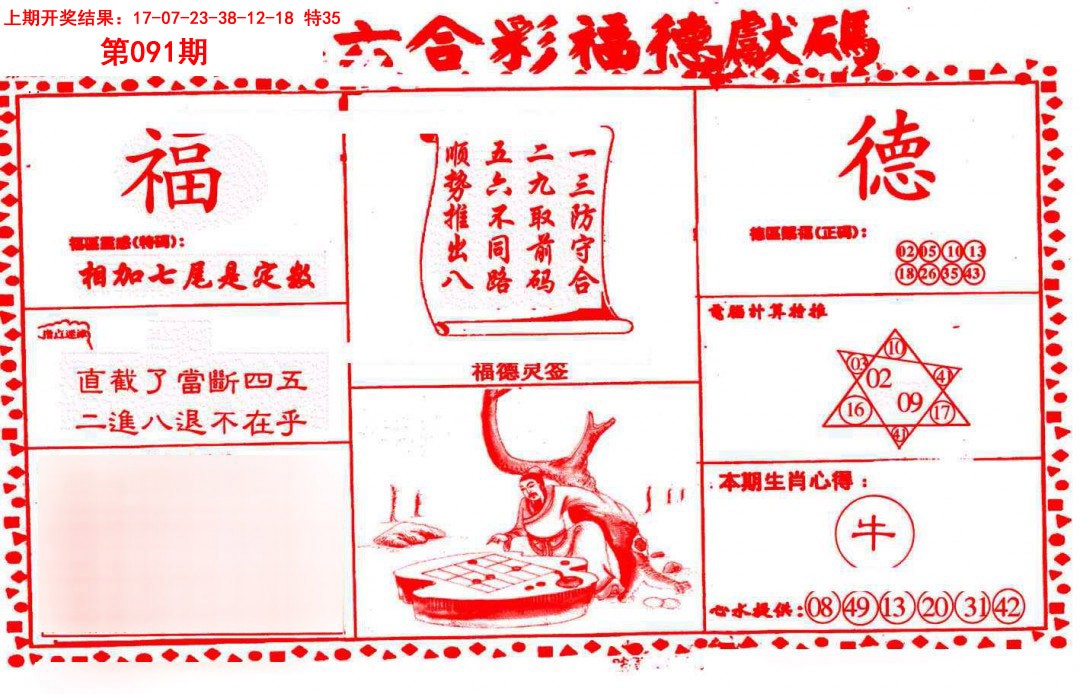 上期开奖结果：17-07-23-38-12-18 特35
第091期
六合彩福德獻碼
福
福區靈感(特碼)：
相加七尾是定数
指点迷津
直截了當斷四五
二進八退不在乎
一三防守合
二九取前码
五六不同路
顺势推出八
福德灵签
德
德區賜福(正碼)：
02 05 10 13
18 26 35 43
電腦計算精推
10
03 02 41
16 09 17
41
本期生肖心得：
牛
心水提供：08 49 13 20 31 42